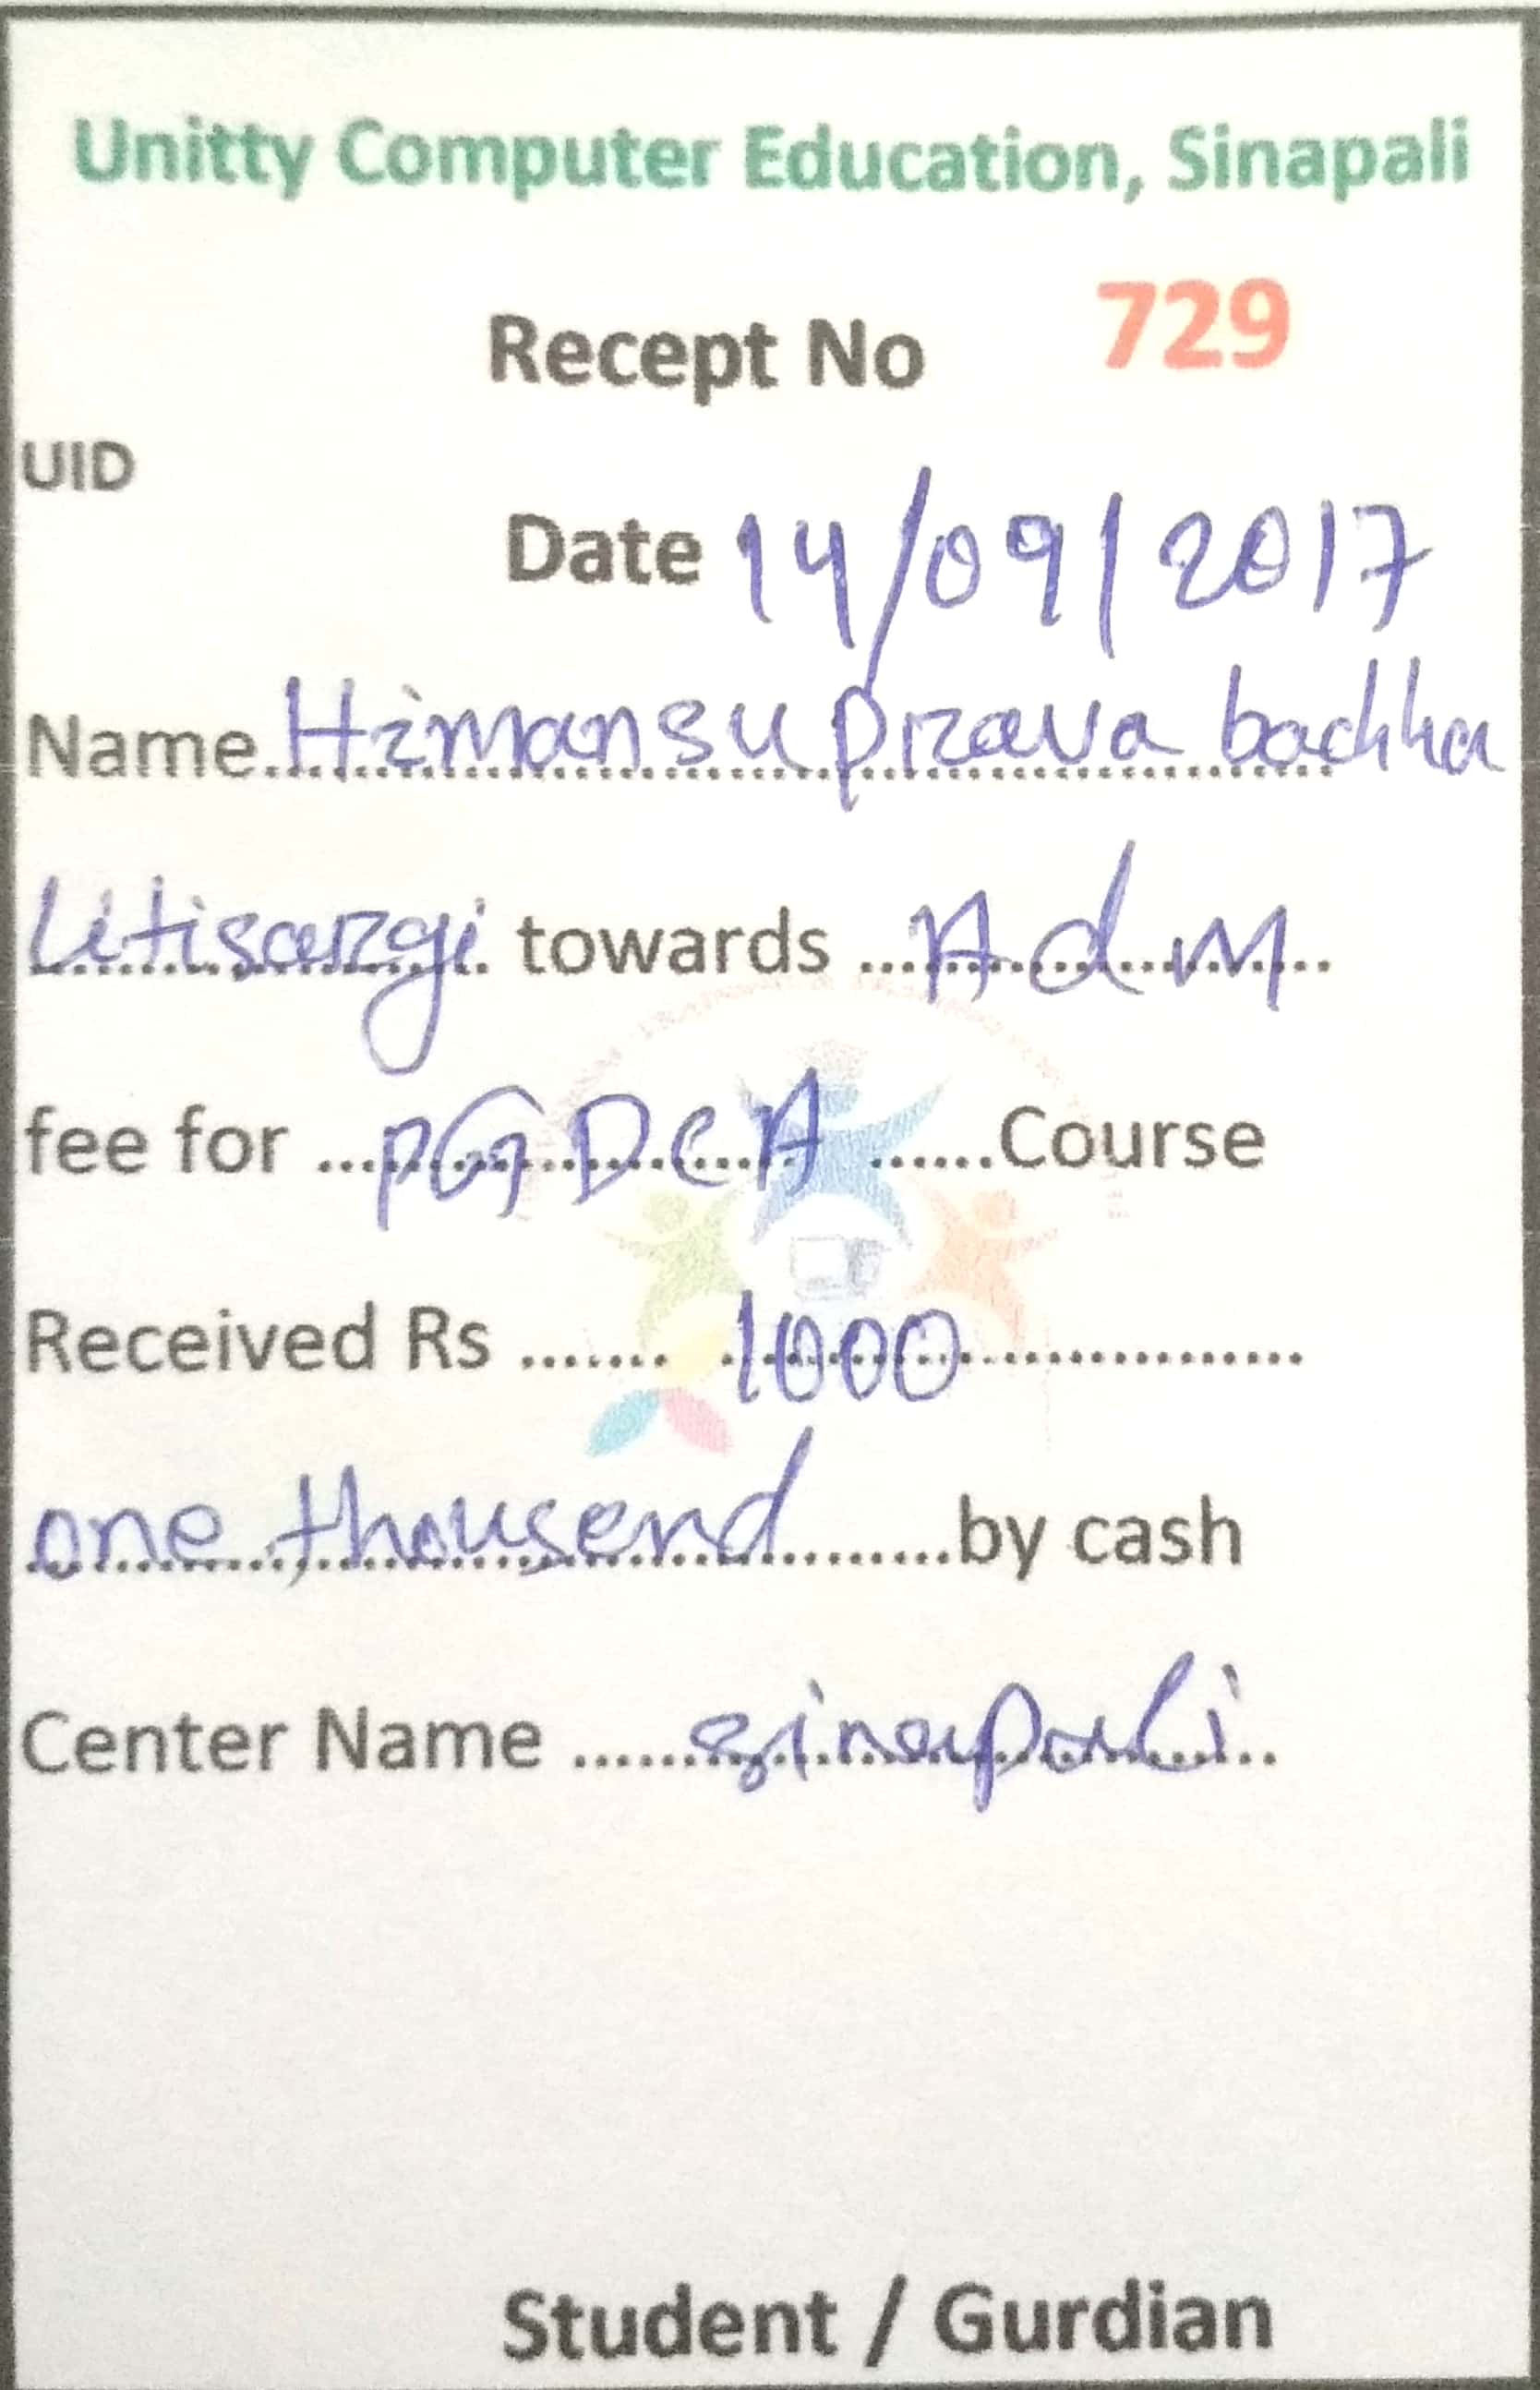 Unitty Computer Education, Sinapali
Recept No 729
UID
Date 14/09/2017
Name Himansu prava bachha
Litisargi towards Adm
fee for PGDCA Course
Received Rs 1000
one thousend by cash
Center Name sinapali
Student / Gurdian